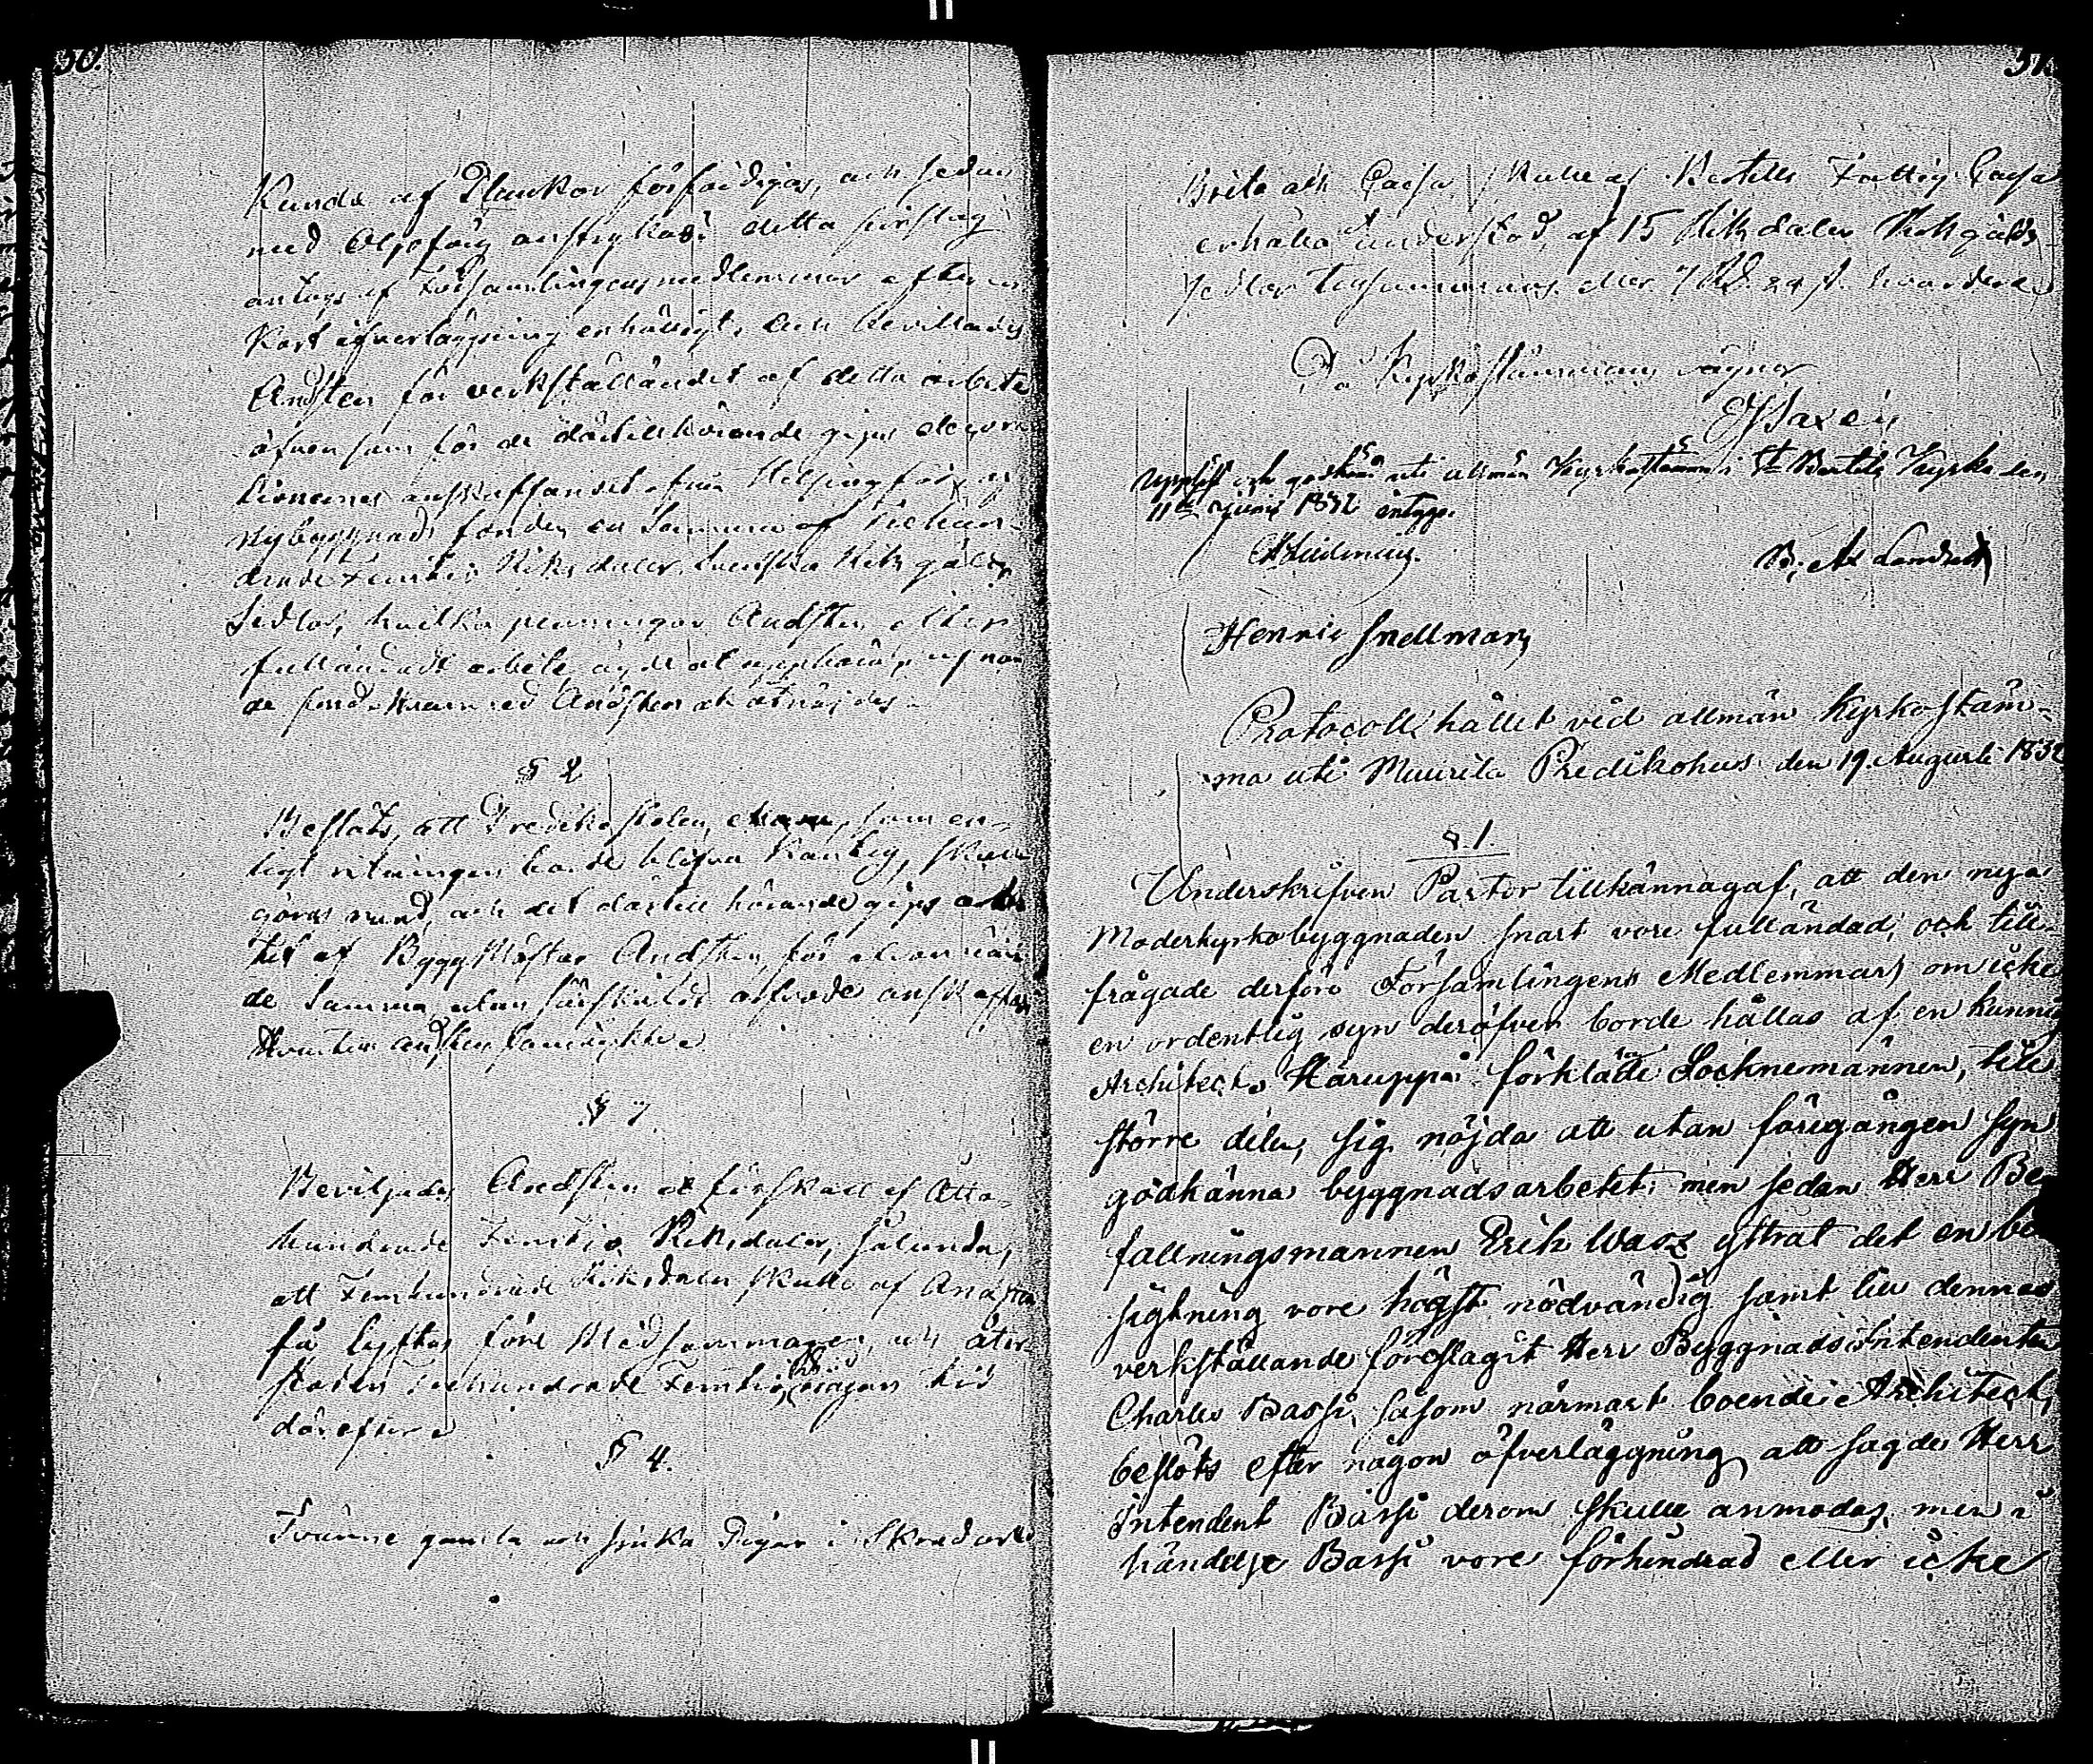 30.
Kunde af Plankor förfärdigas, och sedan
med Oljefärg anstrykas: detta förslag
antogs af Församlingens medlemmar efter en
kort öfverläggning enhälligt, och bevillades
Andsten för verkställandet af detta arbete
äfvensom för de därtill hörande gips
anskaffandet från Helsingfors, af
nybyggnads fonden en Summa af
Riksdaler Svenska Riksgälds
Sedlar, hvilka penningar Andsten efter
fulländadt arbete ägde at uppbära af
de fond. Hvarmed Andsten åtnöjdes.
§ 2
Beslöts, att Predikostolen, som en-
ligt ritningen borde blifva Kantig, skulle
göras rund, och det därtill hörande gips
af ByggMästar Andsten för
de Summa utan särskildt arfvode anskaffas
hvartill Andsten samtyckte.
§ 3.
Beviljades Andsten et förskott af Åtta-
hundrade Femtio Riksdaler, sålunda,
att Femhundrade Riksdaler skulle af Andsten
få lyftas före Midsommaren, och åter-
stoden Trehundrade Femtio, någon tid
därefter.
§ 4.
Tvänne gamla och sjuka Pigor i Skredars
31.
Brita och Caisa skulle af Bertills Fattig Cassa
erhålla et understöd af 15 Riksdaler Riksgälds
Sedlar tillsammans eller 7 Rd. 24 s. hvardera.
På Kyrkostämmans vägnar
Uppläst och godkänd uti allmän Kyrkostämma i St Bertils Kyrka den
11te Junii 1832 intyga.
Henric Snellman
Protocoll hållet vid allmän Kyrkostäm-
ma uti Muurila Predikohus den 19. Augusti 1832
§. 1.
Underskrifven Pastor tillkännagaf, att den nya
Moderkyrkobyggnaden snart vore fulländad, och till-
frågade derföre Församlingens Medlemmar, om icke
en ordentlig syn deröfver borde hållas af en kunnig
Architect. Häruppå förklarade Socknemännen, till
större delen, sig nöjda att utan föregången syn
godkänna byggnadsarbetet; men sedan Herr Be-
fallningsmannen Erik Wass yttrat det en be
sigtning vore högst nödvändig samt till dennes
verkställande föreslagit Herr Byggnads Intendenten
Charles Bassi, såsom närmast boende Architect,
beslöts efter någon öfverläggning, att sagde Herr
Intendent Bassi derom skulle anmodas, men i
händelse Bassi vore förhindrad eller icke